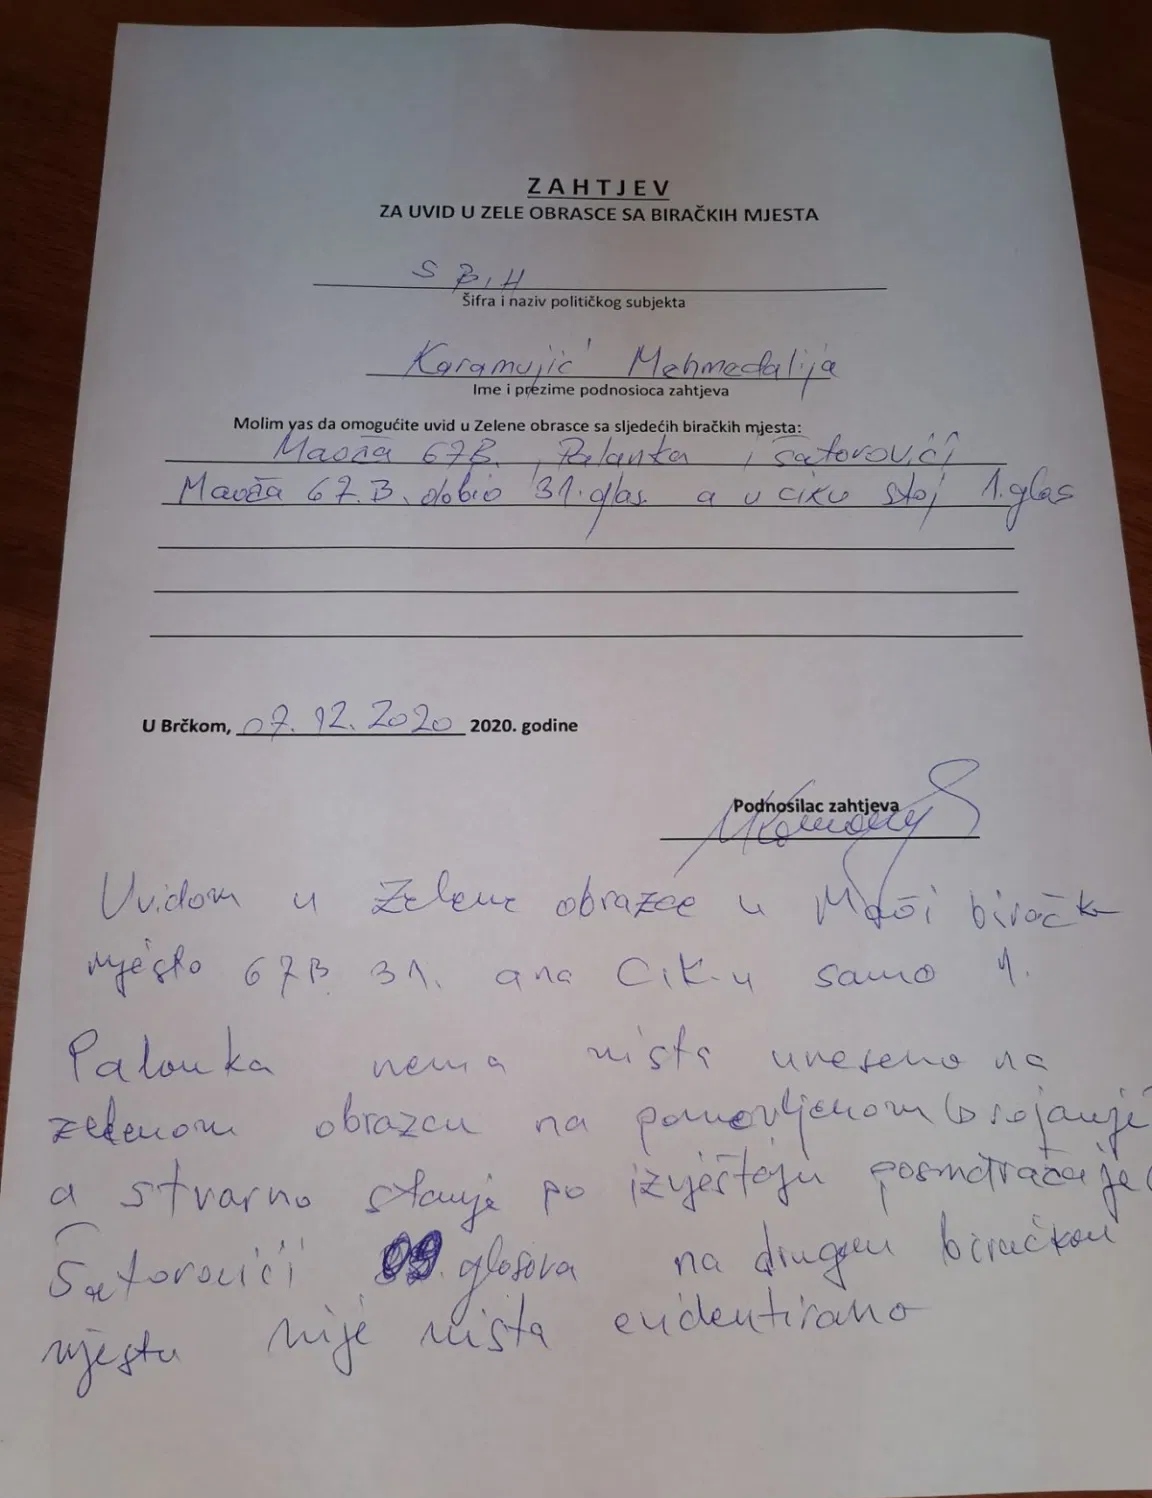 ZAHTJEV
ZA UVID U ZELE OBRASCE SA BIRAČKIH MJESTA
S BiH
Šifra i naziv političkog subjekta
Karamujić Mehmedalija
Ime i prezime podnosioca zahtjeva
Molim vas da omogućite uvid u Zelene obrasce sa sljedećih biračkih mjesta:
Maoča 67B, Palanka i Šatorovići
Maoča 67.B. dobio 31. glas a u ciku stoj 1. glas
U Brčkom, 07.12.2020 2020. godine
Podnosilac zahtjeva
Uvidom u Zelene obrazce u Maoči biračk
mjesto 67B 31. a na CIK-u samo 1.
Palanka nema ništa uneseno na
zelenom obrazcu na ponovljenom
a stvarno stanje po izvještaju posmatrača je
Šatorovići glasova na drugom biračkom
mjestu nije ništa evidentirano